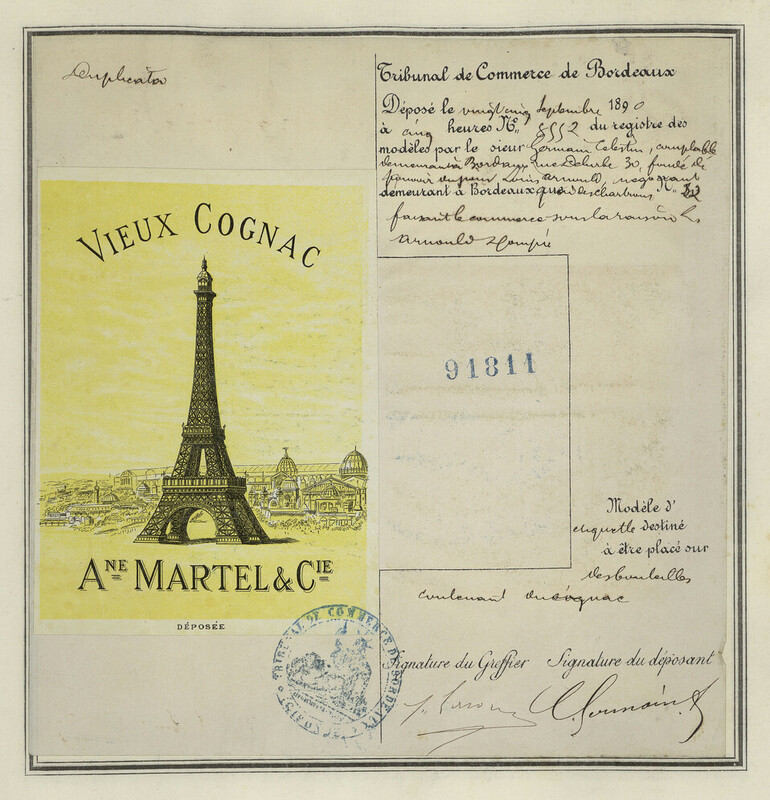 Duplicata
VIEUX COGNAC
ANE MARTEL & CIE
DÉPOSÉE
Tribunal de Commerce de Bordeaux
Déposé le vingt cinq Septembre 1890
à cinq heures No. 8552 du registre des
modèles par le sieur Germain Célestin, comptable
demeurant à Bordeaux rue 30, fondé de
pouvoir du sieur Louis Arnould, négociant
demeurant à Bordeaux quai des Chartrons No.
faisant le commerce sous la raison Ls
Arnould & Compie
91811
Modèle d'
étiquette destiné
à être placé sur
des bouteilles
contenant du cognac
Signature du Greffier Signature du déposant
C. Germain
TRIBUNAL DE COMMERCE DE BORDEAUX